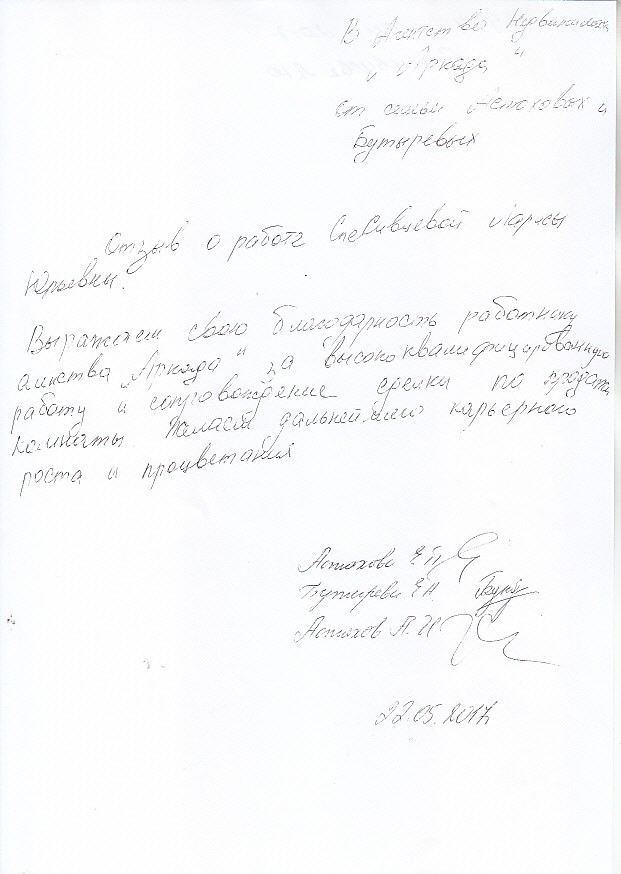 В Агентство Недвижимости
„Аркада"
от семьи Астаховых и
Бутыревых
Отзыв о работе Спесивцевой Ларисы
Юрьевны.
Выражаем свою благодарность работнику
агенства „Аркада" за высококвалифицированную
работу и сопровождение сделки по продаже
комнаты. Желаем дальнейшего карьерного
роста и процветания
Астахова Е.
Бутырева Е А
Астахов А. И
22.05.2017